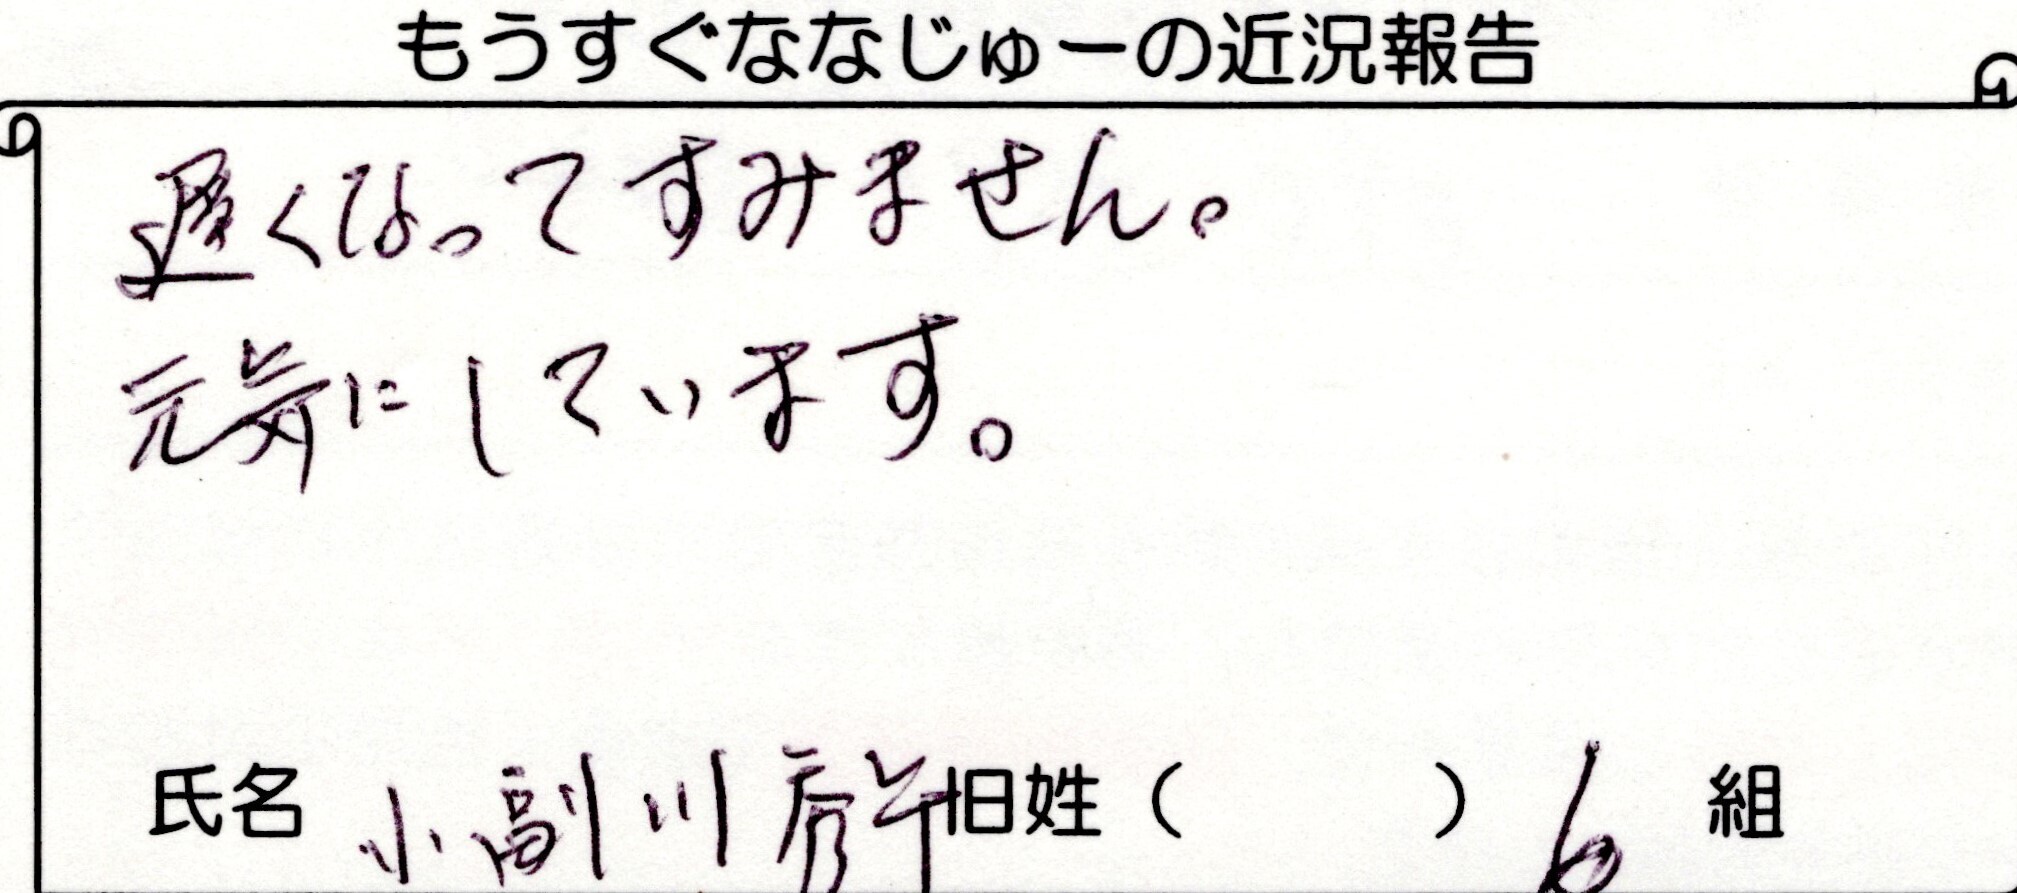 もうすぐななじゅーの近況報告
遅くなってすみません。
元気にしています。
氏名 小副川 旧姓( ) 6 組